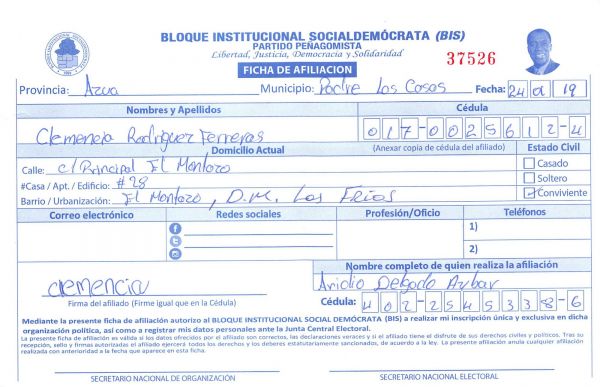 BLOQUE INSTITUCIONAL SOCIALDEMÓCRATA (BIS)
PARTIDO PEÑAGOMISTA
Libertad, Justicia, Democracia y Solidaridad
37526
FICHA DE AFILIACION
Provincia: Azua Municipio: Padre Las Casas Fecha: 24 01 19
Nombres y Apellidos Cédula
Clemencia Rodriguez Ferreras 017-0025612-4
Domicilio Actual (Anexar copia de cédula del afiliado) Estado Civil
Calle: c/ Principal El Montazo Casado
#Casa / Apt. / Edificio: #28 Soltero
Barrio / Urbanización: El Montazo, D.M. Las Frias Conviviente
Correo electrónico Redes sociales Profesión/Oficio Teléfonos
1)
2)
Nombre completo de quien realiza la afiliación
clemencia Delgado Aybar
Firma del afiliado (Firme igual que en la Cédula) Cédula: 402-2545338-6
Mediante la presente ficha de afiliación autorizo al BLOQUE INSTITUCIONAL SOCIAL DEMÓCRATA (BIS) a realizar mi inscripción única y exclusiva en dicha
organización política, así como a registrar mis datos personales ante la Junta Central Electoral.
La presente ficha de afiliación es válida si los datos ofrecidos por el afiliado son correctos, las declaraciones veraces y si el afiliado tiene el disfrute de sus derechos civiles y políticos. Tras su
recepción, sello y firmas autorizadas el afiliado ejercerá todos los derechos y los deberes estatutariamente sancionados, de acuerdo a la ley. La presente afiliación anula cualquier afiliación
realizada con anterioridad a la fecha que aparece en esta ficha.
SECRETARIO NACIONAL DE ORGANIZACIÓN SECRETARIO NACIONAL ELECTORAL